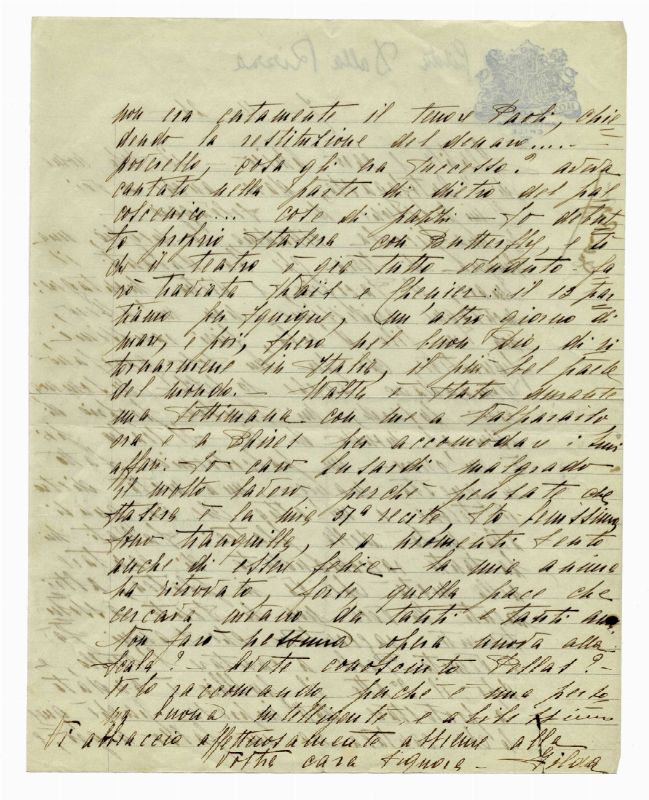 non era certamente il tenor Paoli, chie=
dendo la restituzione del denaro.....
poverello, cosa gli era successo? aveva
cantato nella parte di dietro del pal
coscenico... cose di pazzi – Io debut
to proprio stasera con Butterfly, e
il teatro è già tutto venduto – fa
rò traviata Thaïs e Chenier. il 13 par=
tiamo per Iquique, un'altro giorno di
mare, e poi, spero nel buon Dio, di ri
tornarmene in Italia, il più bel paese
del mondo. – è stato durante
una settimana con me a Valparaiso
ora è a BAires per accomodare i suoi
affari. – Io caro Lusardi malgrado
il molto lavoro, perchè pensate che
stasera è la mia 57a recita sto benissimo
sono tranquilla, e a momenti sento
anche di esser felice – la mia anima
ha ritrovato, forse quella pace che
cercava invano da tanti e tanti anni.
Non farò nessuna opera nuova alla
Scala? – Avete conosciuto ?–
te lo raccomando, perche è una perso
na buona intelligente e abilissimo
Vi abbraccio affettuosamente assieme alla
vostra cara Signora – Gilda
Gilda Dalla Rizza
CHILE